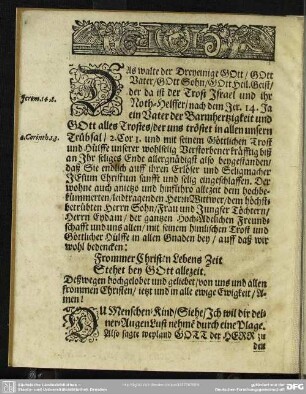 DAs walte der Dreyeinige GOtt / GOtt
Vater / GOtt Sohn / GOtt Heil. Geist /
der da ist der Trost Jsrael und ihr
Noth-Helffer / nach dem Jer. 14. Ja
ein Vater der Barmhertzigkeit und
GOtt alles Trostes / der uns tröstet in allen unsern
Trübsal / 2. Cor 1. und mit seinem Göttlichen Trost
und Hülffe unserer wohlselig Verstorbenen kräfftig biß
an Jhr seliges Ende allergnädigst also beygestanden /
daß Sie endlich auff ihren Erlöser und Seligmacher
JEsum Christum sanfft und selig eingeschlaffen. Der
wohne auch anietzo und hinführo allezeit dem hochbe-
kümmerten / leidtragenden Herrn Wittwer / dem höchst-
betrübten Herrn Sohn / Frau und Jungfer Töchtern /
Herrn Eydam / der gantzen Hoch-Adelichen Freund-
schafft und uns allen / mit seinem himlischen Trost und
Göttlicher Hülffe in allen Gnaden bey / auff daß wir
wohl bedencken:
Frommer Christ'n Lebens Zeit
Stehet bey GOtt allezeit.
Deßwegen hochgelobet und geliebet / von uns und allen
frommen Christen / ietzt und in alle ewige Ewigkeit / A-
men!
DU Menschen-Kind / Siehe / Jch wil dir dei-
ner Augen Lust nehmē durch eine Plage.
Also sagte weyland GOTT der HERR zu
dem
Jerem. 14. 8.
2. Corinth. 1. 3.